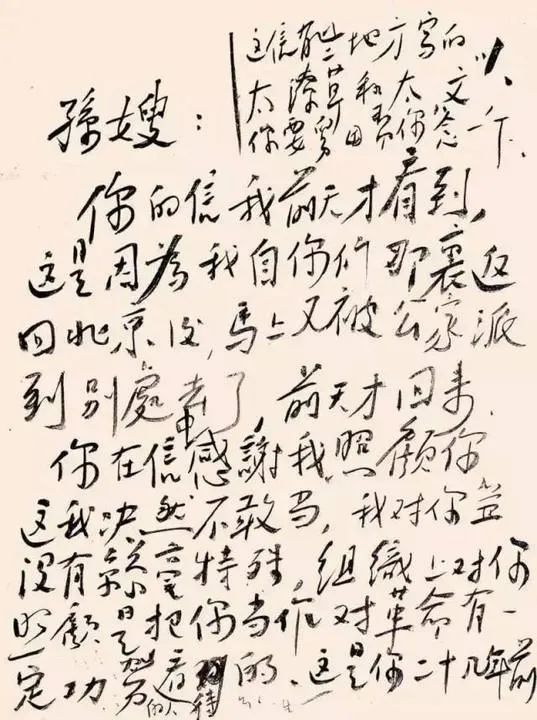 这信有些地方写的
太潦草和太文
你要 田帮你念一下.
孫嫂：
你的信我前天才看到，
这是因為我自你们那裏返
回北京后，馬上又被公家派
到别處去了，前天才回来.
你在信中感謝我照顾你
这我决然不敢当，我对你並
没有 毫特殊，組織上对你
照顾是把你当作对革命有一
定功劳的人看待的、这是你二十几年前